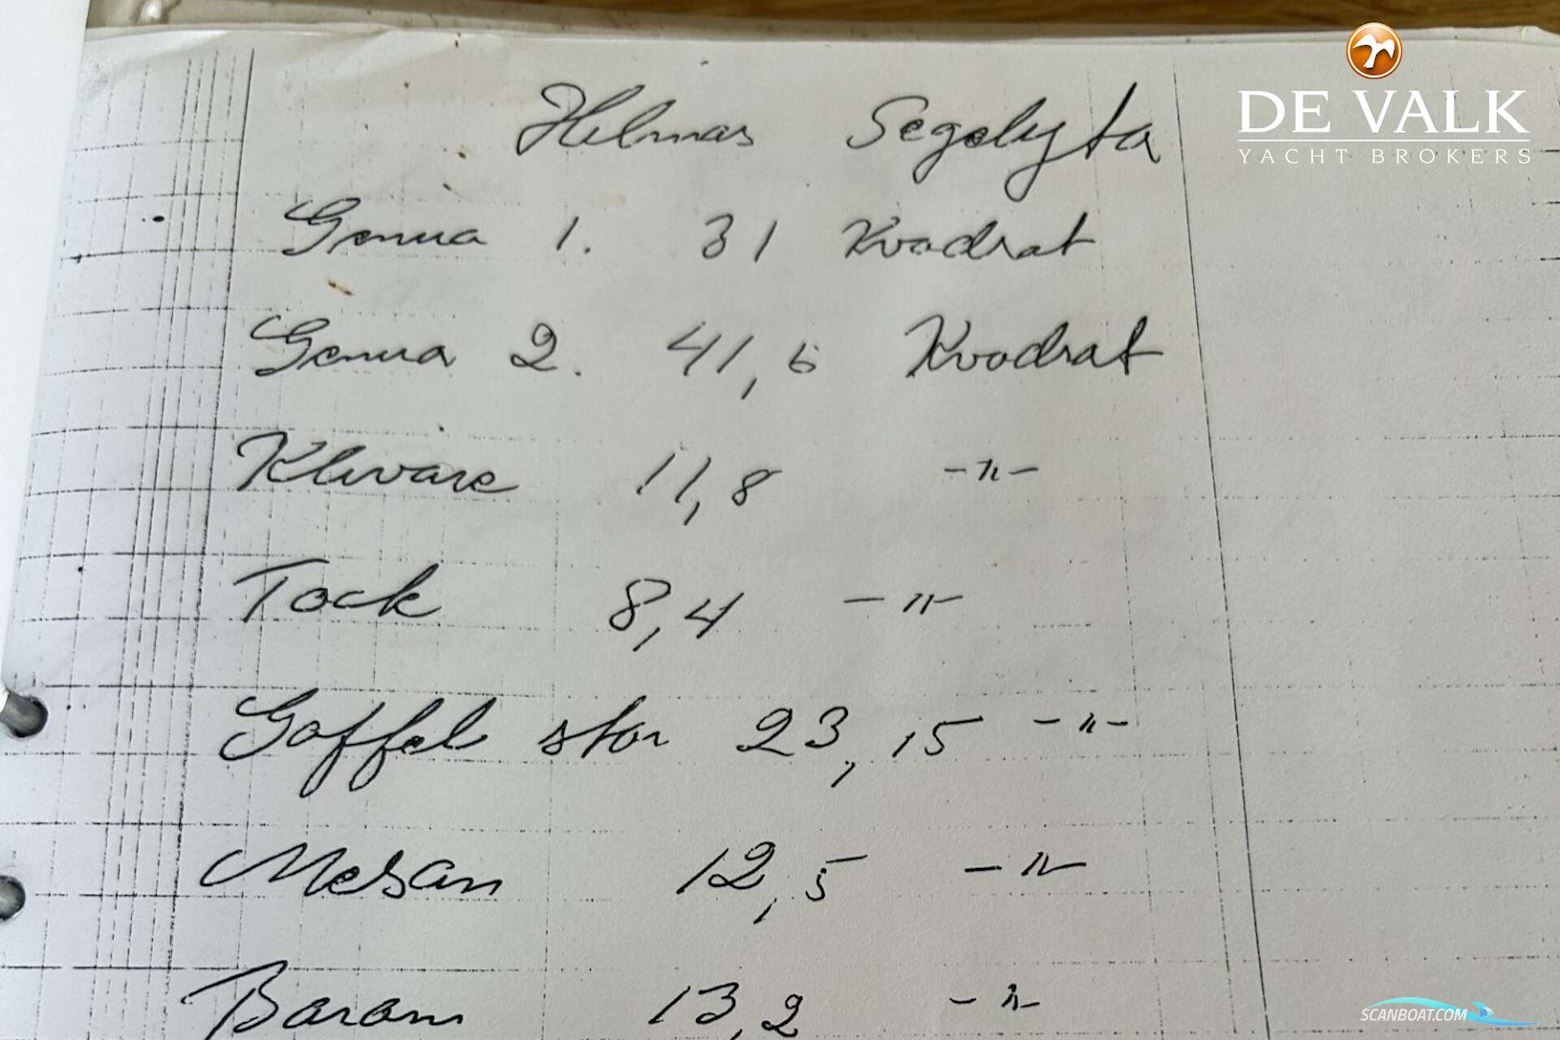 DE VALK
YACHT BROKERS
Helmas Segelyta
Genua 1. 31 Kvadrat
Genua 2. 41,5 Kvadrat
Klivare 11,8 -"-
Fock 8,4 -"-
Gaffel stor 23,15 -"-
Mesan 12,5 -"-
13,2 -"-
SCANBOAT.COM